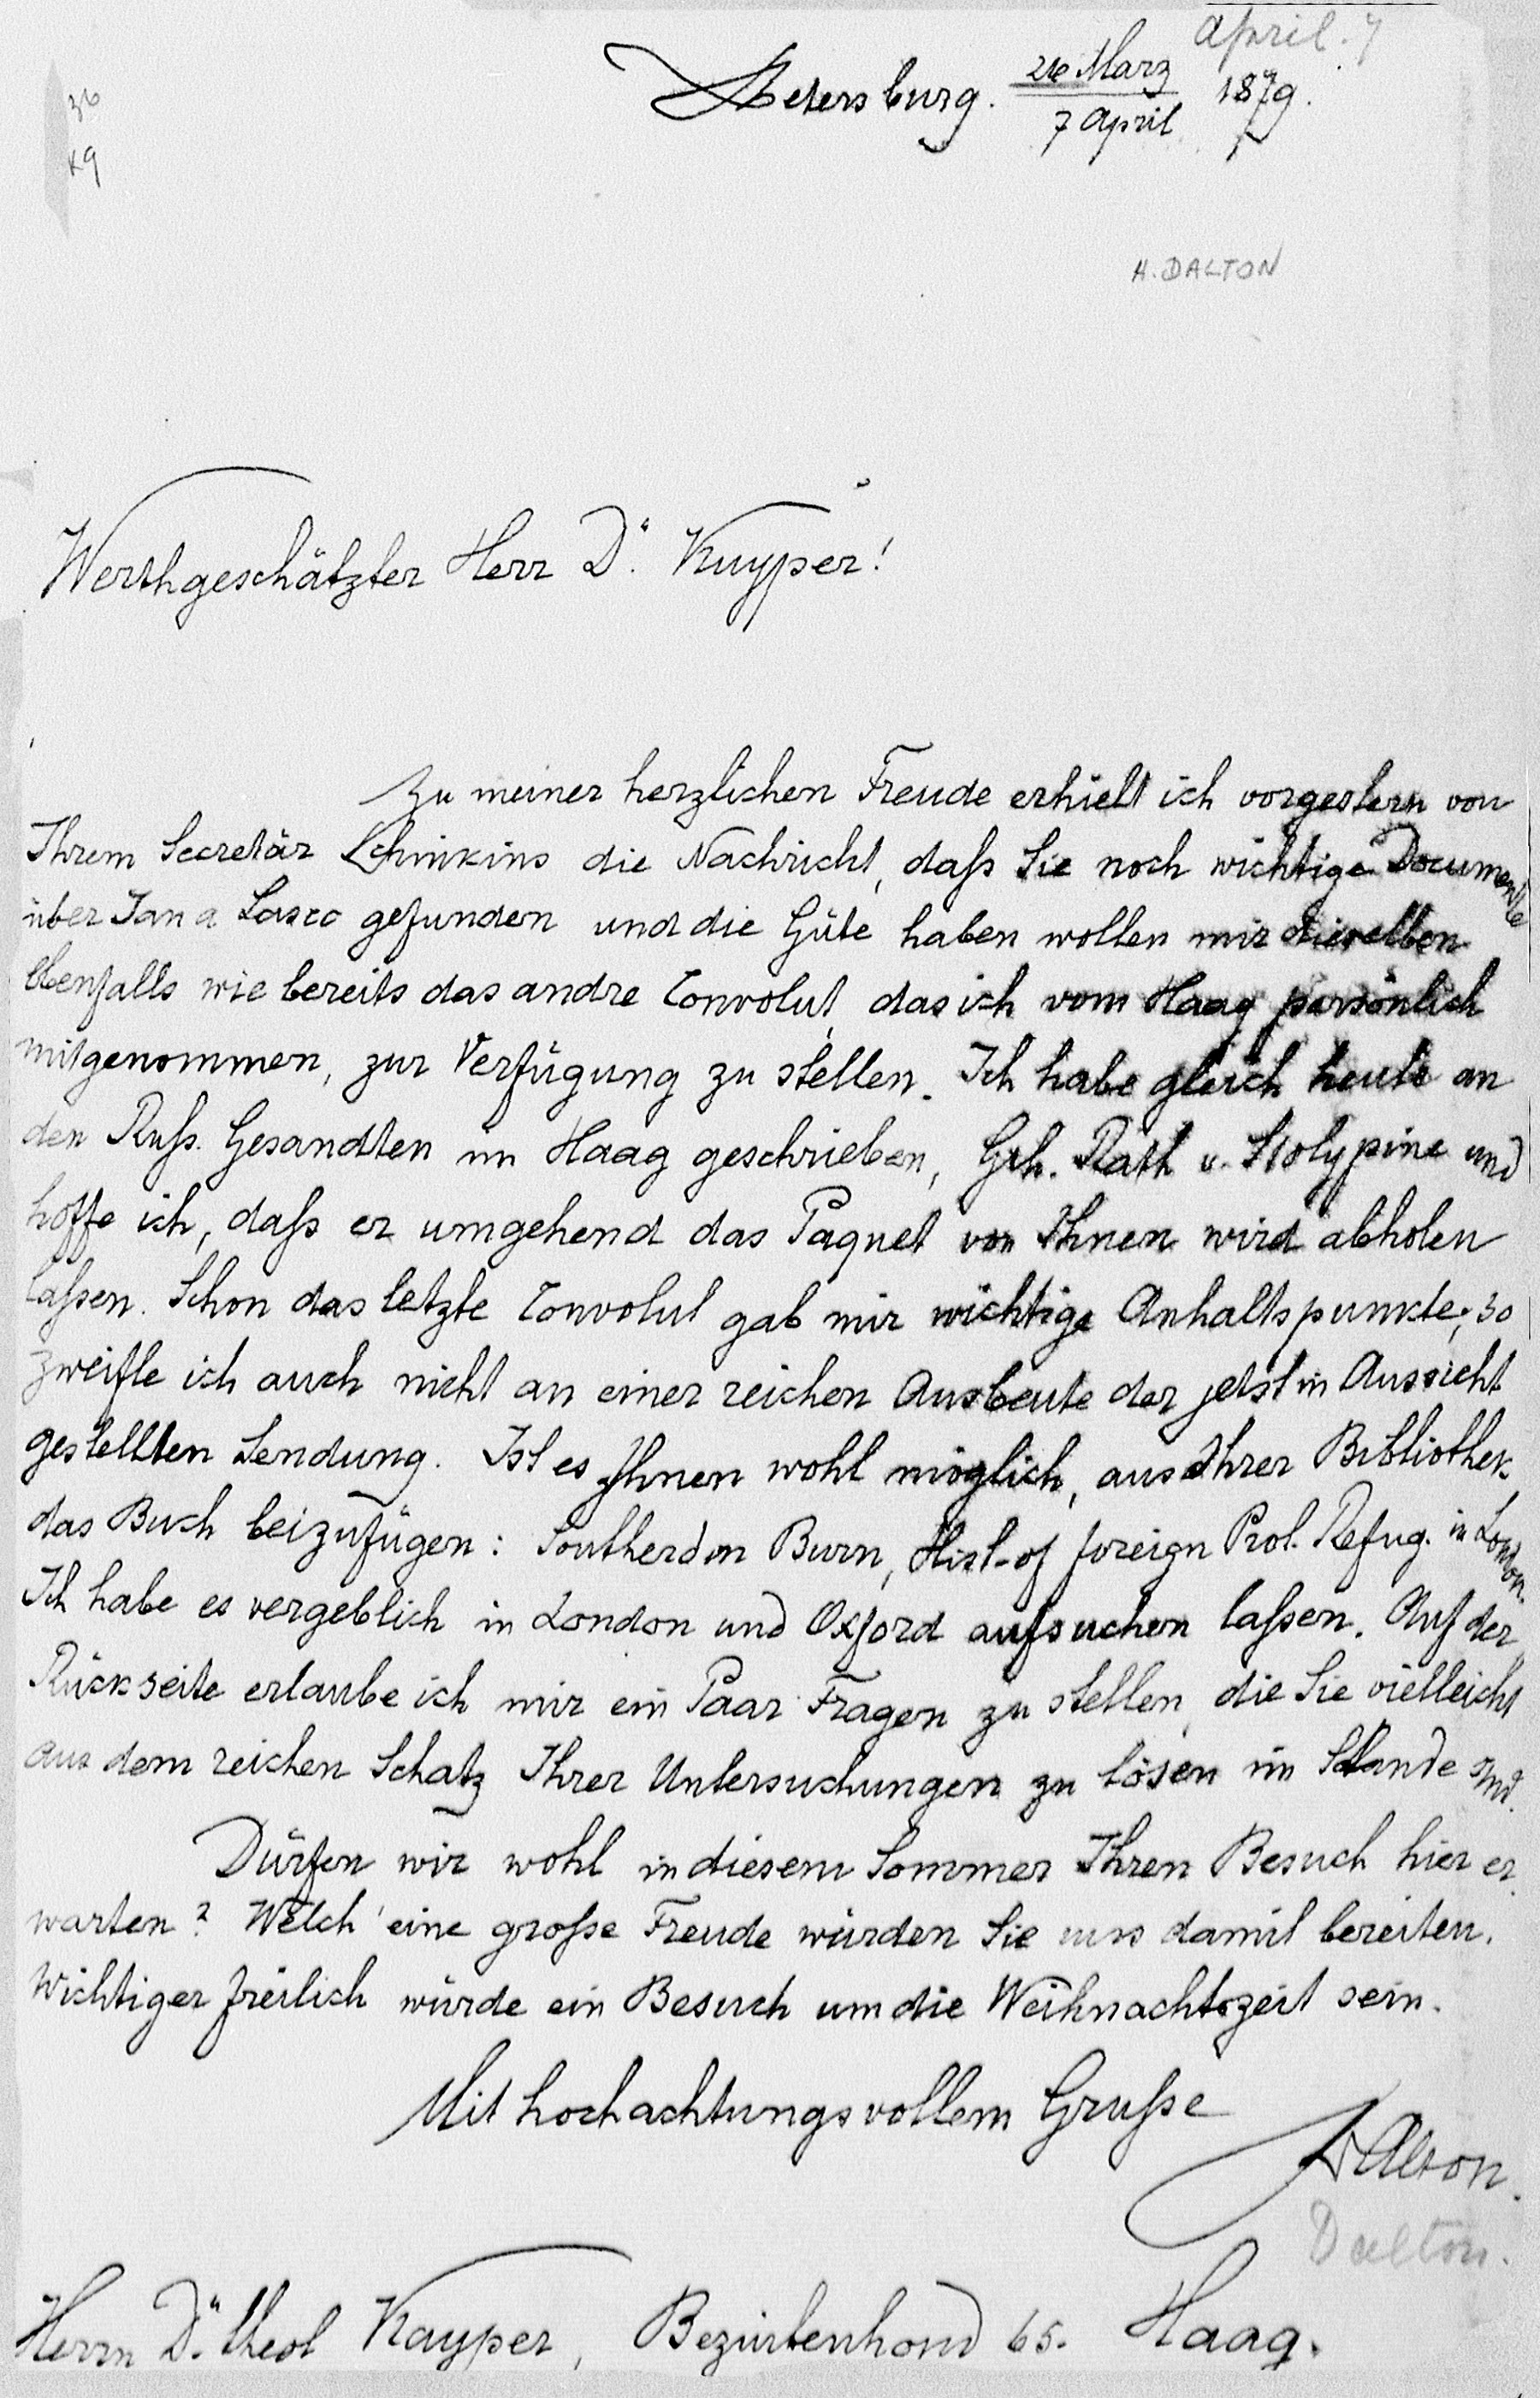 April. 7
Petersburg. 26 März / 7 April 1879.
36
K9
H. DALTON
Werthgeschätzter Herr Dr. Kuyper!
Zu meiner herzlichen Freude erhielt ich vorgestern von
Ihrem Secretär die Nachricht, daß Sie noch wichtige Documente
über Jan a Lasco gefunden und die Güte haben wollen mir dieselben
ebenfalls wie bereits das andre Convolut, das ich vom Haag persönlich
mitgenommen, zur Verfügung zu stellen. Ich habe gleich heute an
den Ruß. Gesandten im Haag geschrieben, Geh. Rath v. Stolypine und
hoffe ich, daß er umgehend das Paquet von Ihnen wird abholen
laßen. Schon das letzte Convolut gab mir wichtige Anhaltspunkte; so
zweifle ich auch nicht an einer reichen Ausbeute der jetzt in Aussicht
gestellten Sendung. Ist es Ihnen wohl möglich, aus Ihrer Bibliothek
das Buch beizufügen: Southerdon Burn, Hist. of foreign Prot. Refug. in London.
Ich habe es vergeblich in London und Oxford aufsuchen laßen. Auf der
Rückseite erlaube ich mir ein Paar Fragen zu stellen, die Sie vielleicht
aus dem reichen Schatz Ihrer Untersuchungen zu lösen im Stande sind.
Dürfen wir wohl in diesem Sommer Ihren Besuch hier er
warten? Welch' eine große Freude würden Sie uns damit bereiten.
Wichtiger freilich würde ein Besuch um die Weihnachtszeit sein.
Mit hochachtungsvollem Gruße
Dalton.
Dalton.
Herrn Dr. theol Kuyper, 65. Haag.